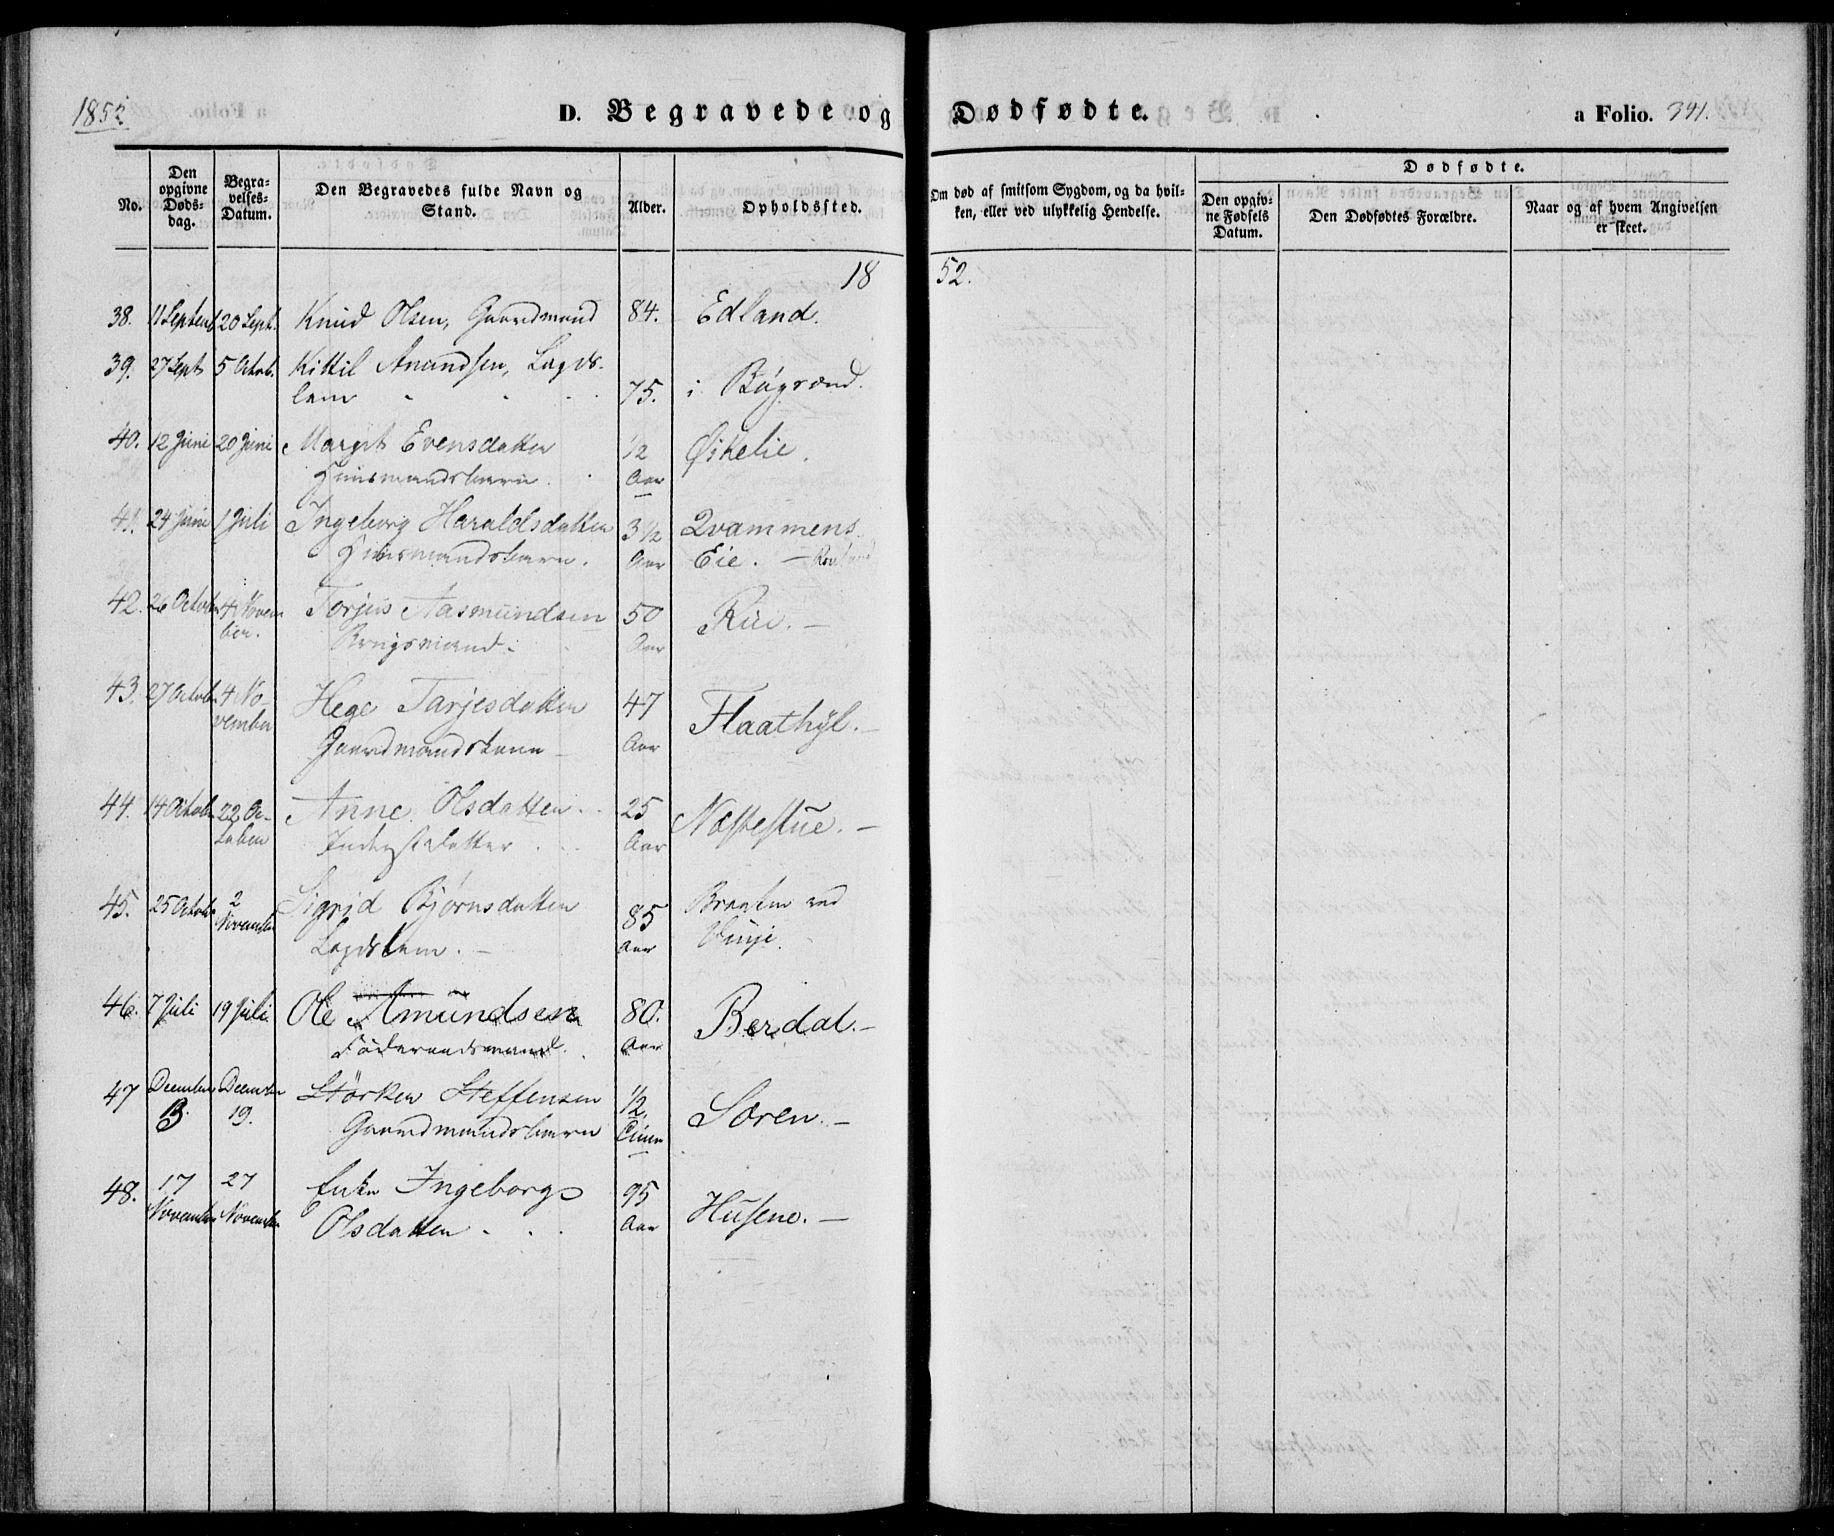 1852
D. Begravede og Dødfødte.
a Folio. 341.
No.
Den opgivne Døds-dag.
Begra-velses-Datum.
Den Begravedes fulde Navn og Stand.
Alder.
Opholdssted.
Om død af smitsom Sygdom, og da hvil-ken, eller ved ulykkelig Hendelse.
Dødfødte.
Den opgiv-ne Fødsels Datum.
Den Dødfødtes Forældre.
Naar og af hvem Angivelsen er skeet.
1852.
38. 11 Septemb 20 Sept. Knud Olsen, Gaardmand 84. Edland.
39. 27 Sept 5 Octob. Kittil Anundsen, Lægds-
lem 75. i Bøgrend.
40. 12 Juni 20 Juni Margit Evensdatter 1/2 Øikelie.
Huusmandsbarn. Aar
41. 24 Juni 1 Juli Ingeborg Haraldsdatter 3 1/2 Qvammens
Huusmandsbarn. Aar Eie.
42. 26 October 4 Novem Torjus Aasmundsen 50 Rui.
ber. Brugsmand. Aar
43. 27 October 4 No- Hege Tarjesdatter 47 Flaathyl.
vember Gaardmandskone Aar
44. 14 October 22 Oc- Anne Olsdatter 25 Næstestue.
tober Inderstdatter Aar
45. 25 October 2 Sigrid Bjørnsdatter 85 Braaten ved
November Lægdslem. Aar Vinje.
46. 7 Juli 19 Juli Ole Amundsen 80. Berdal.
Føderaadsmand. Aar
47 December December Størker Steffensen 1/2 Søren.
13. 19. Gaardmandsbarn
48. 17 27 Enke Ingeborg 95 Husene.
November November Olsdatter Aar